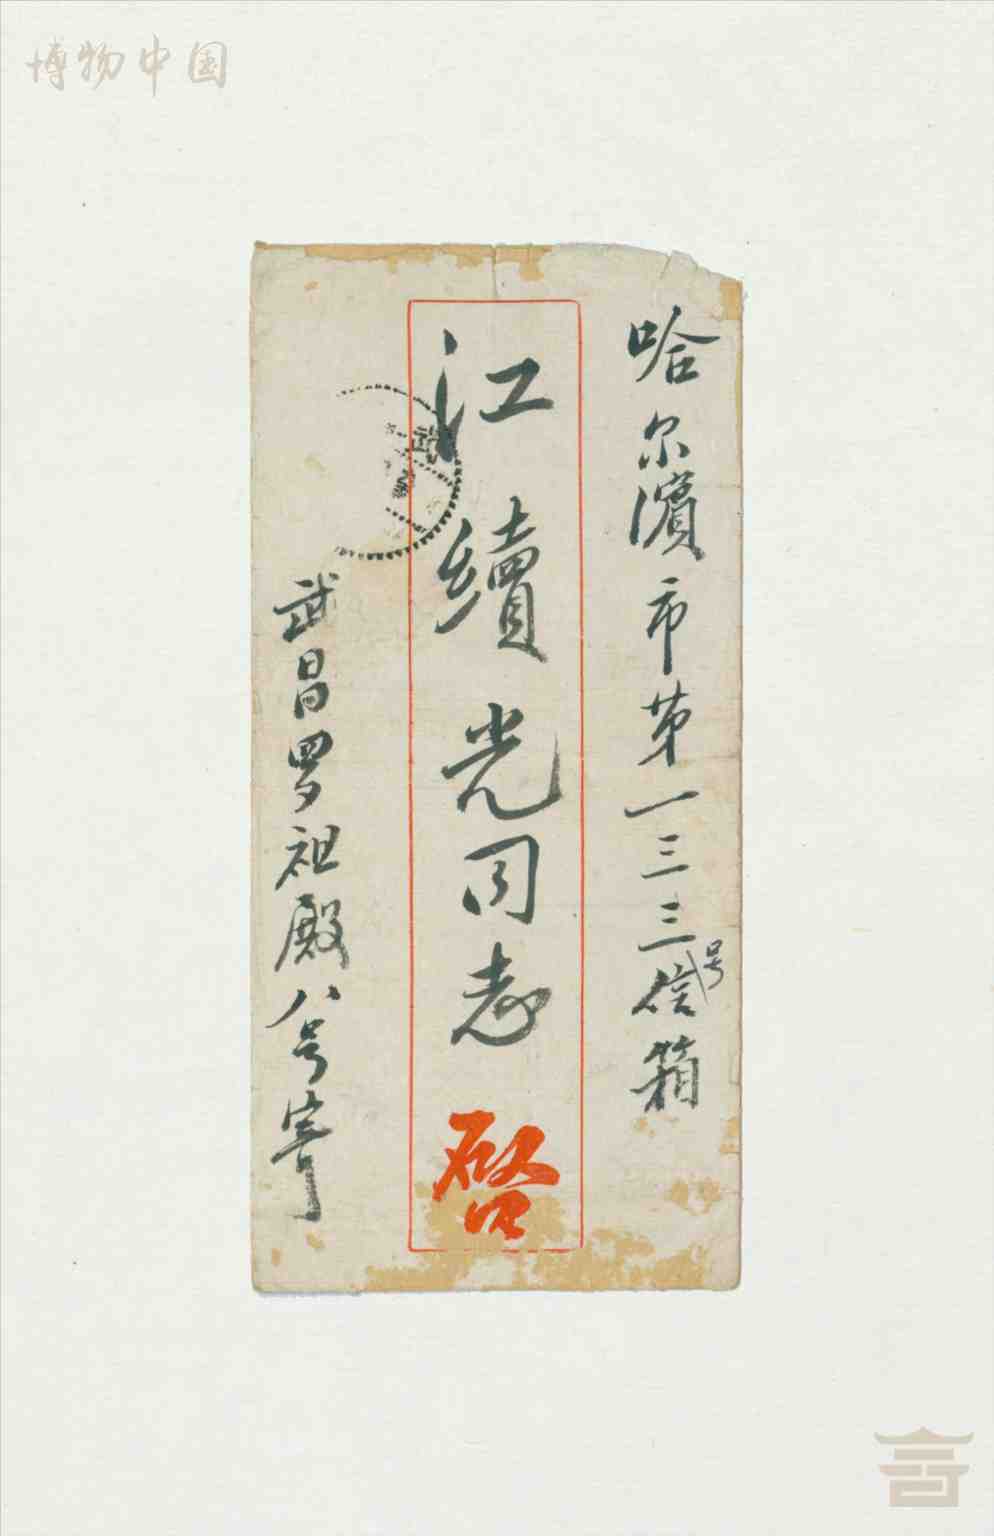 博物中国
哈尔濱市第一三三号信箱
江續光同志 啓
武昌罗祖殿八号寄
武